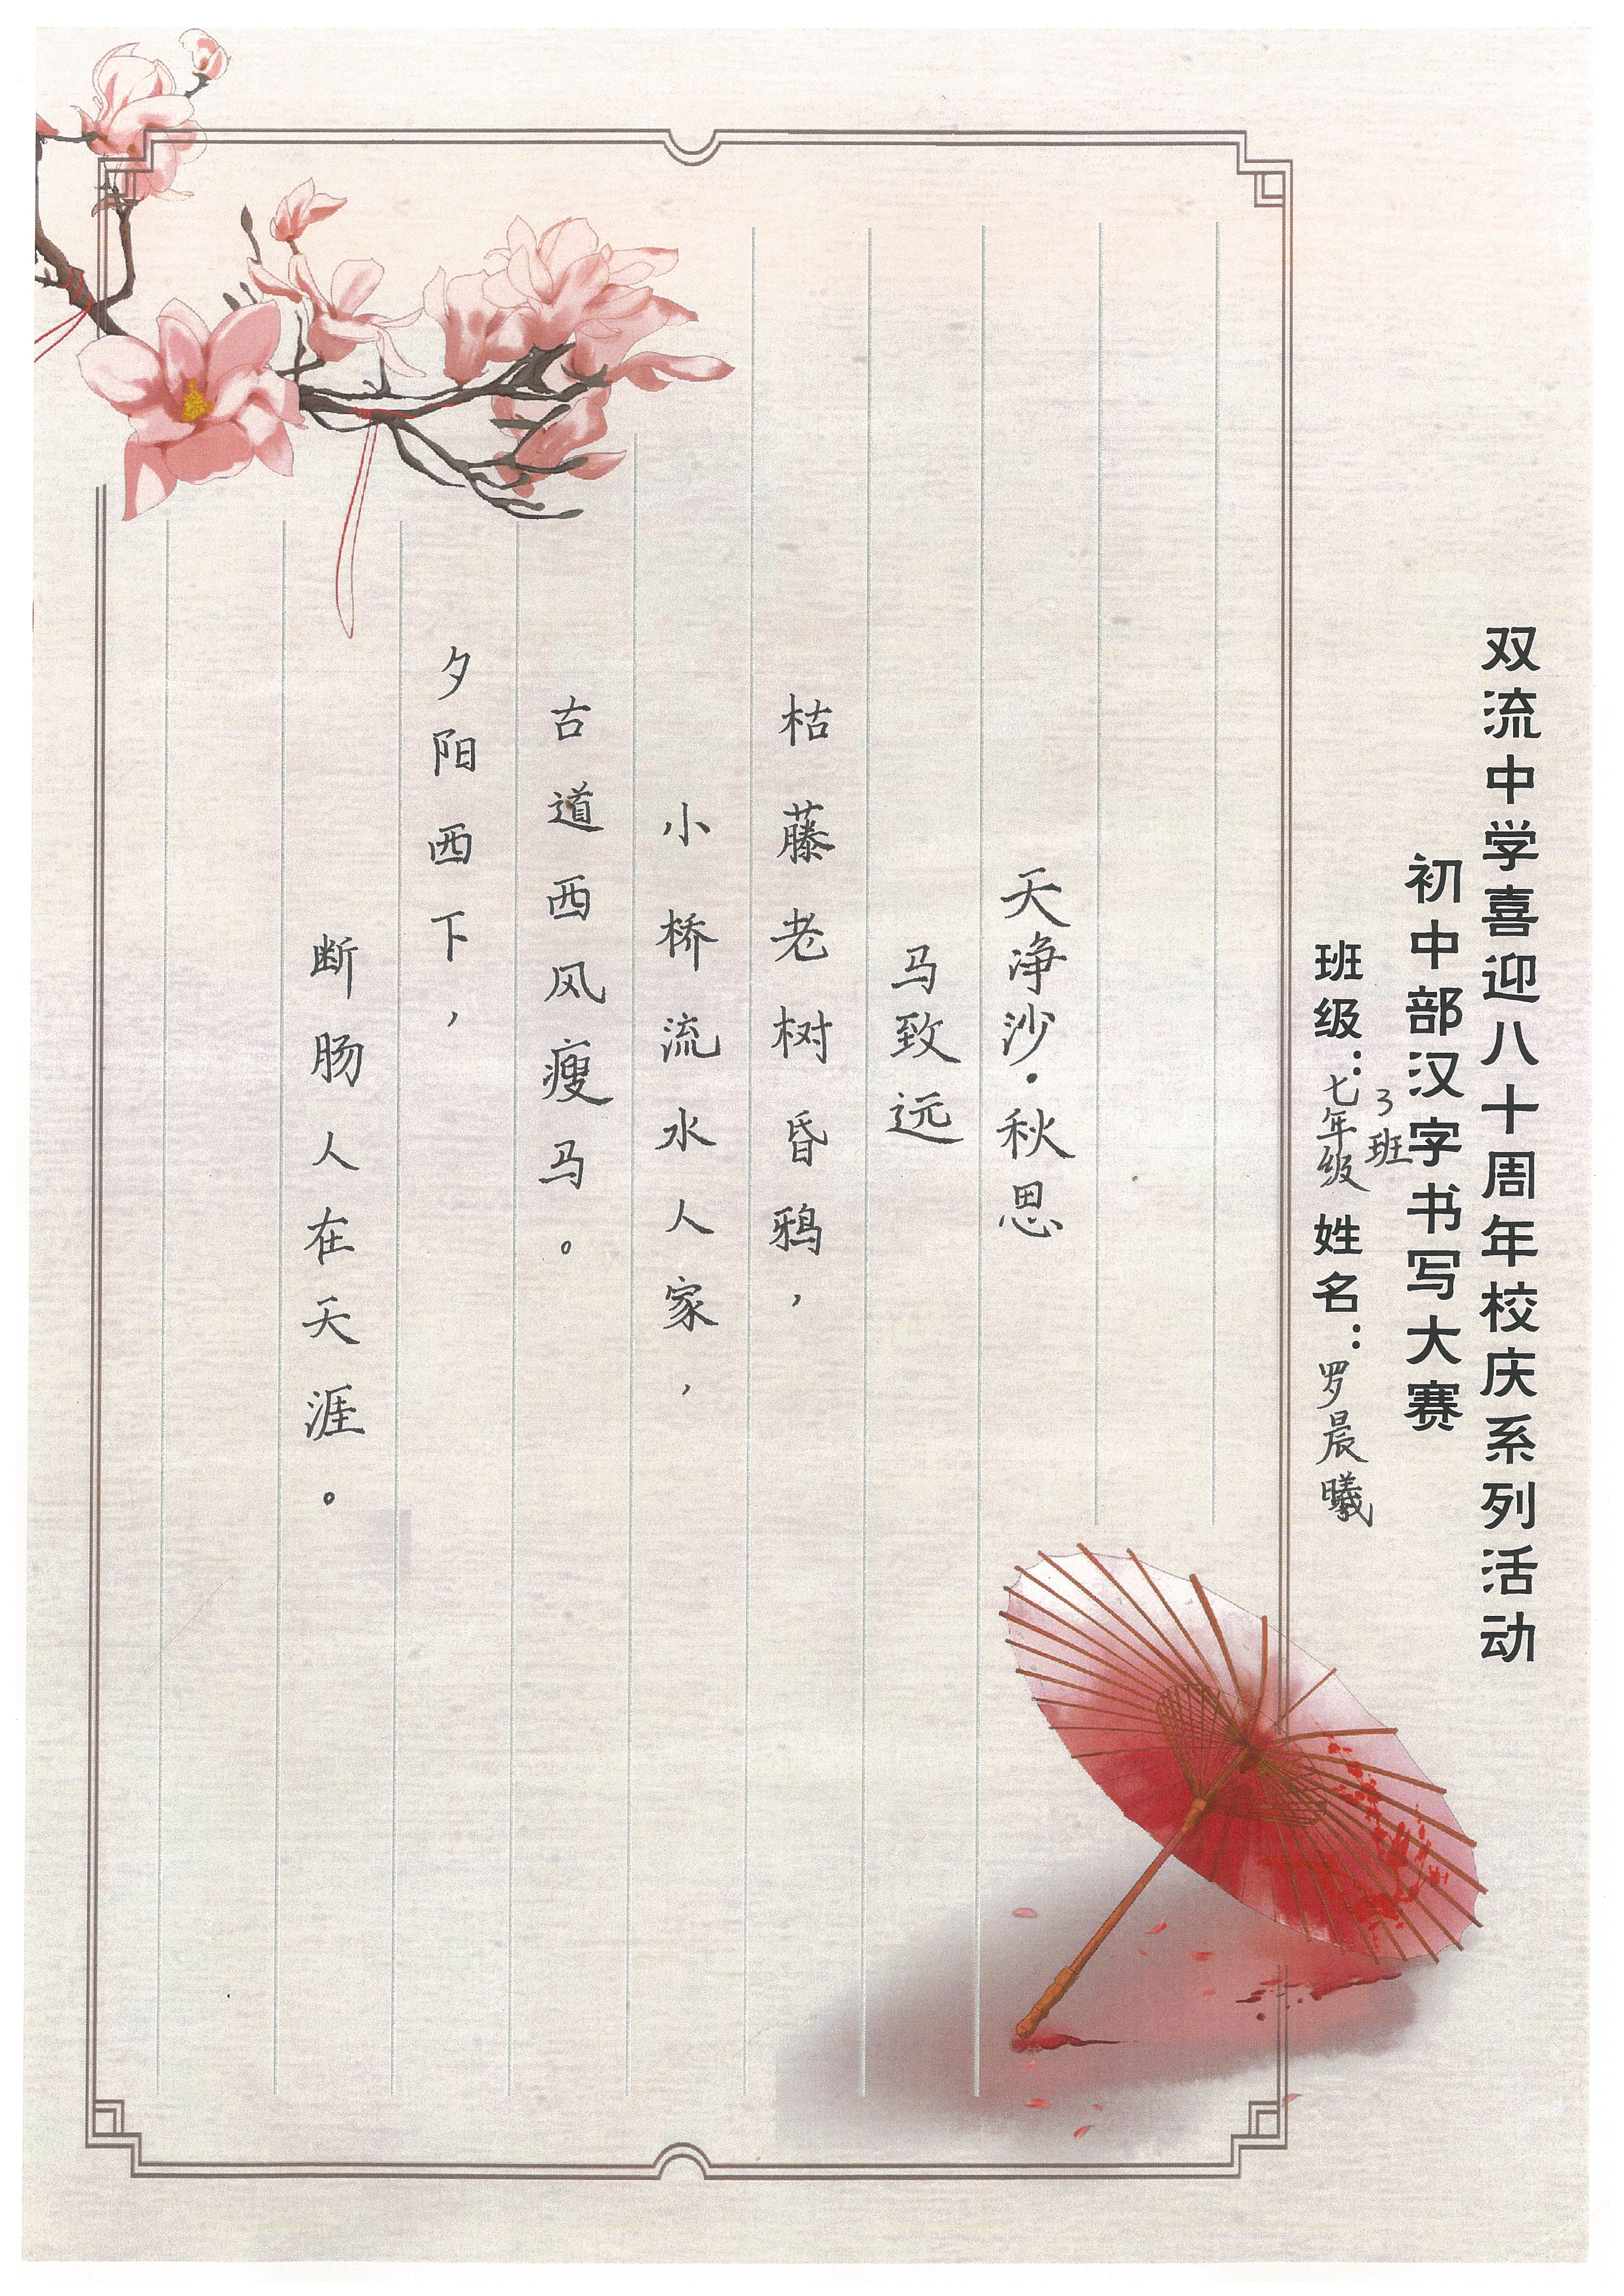 双流中学喜迎八十周年校庆系列活动
初中部汉字书写大赛
班级：七年级3班 姓名：罗晨曦
天净沙·秋思
马致远
枯藤老树昏鸦，
小桥流水人家，
古道西风瘦马。
夕阳西下，
断肠人在天涯。